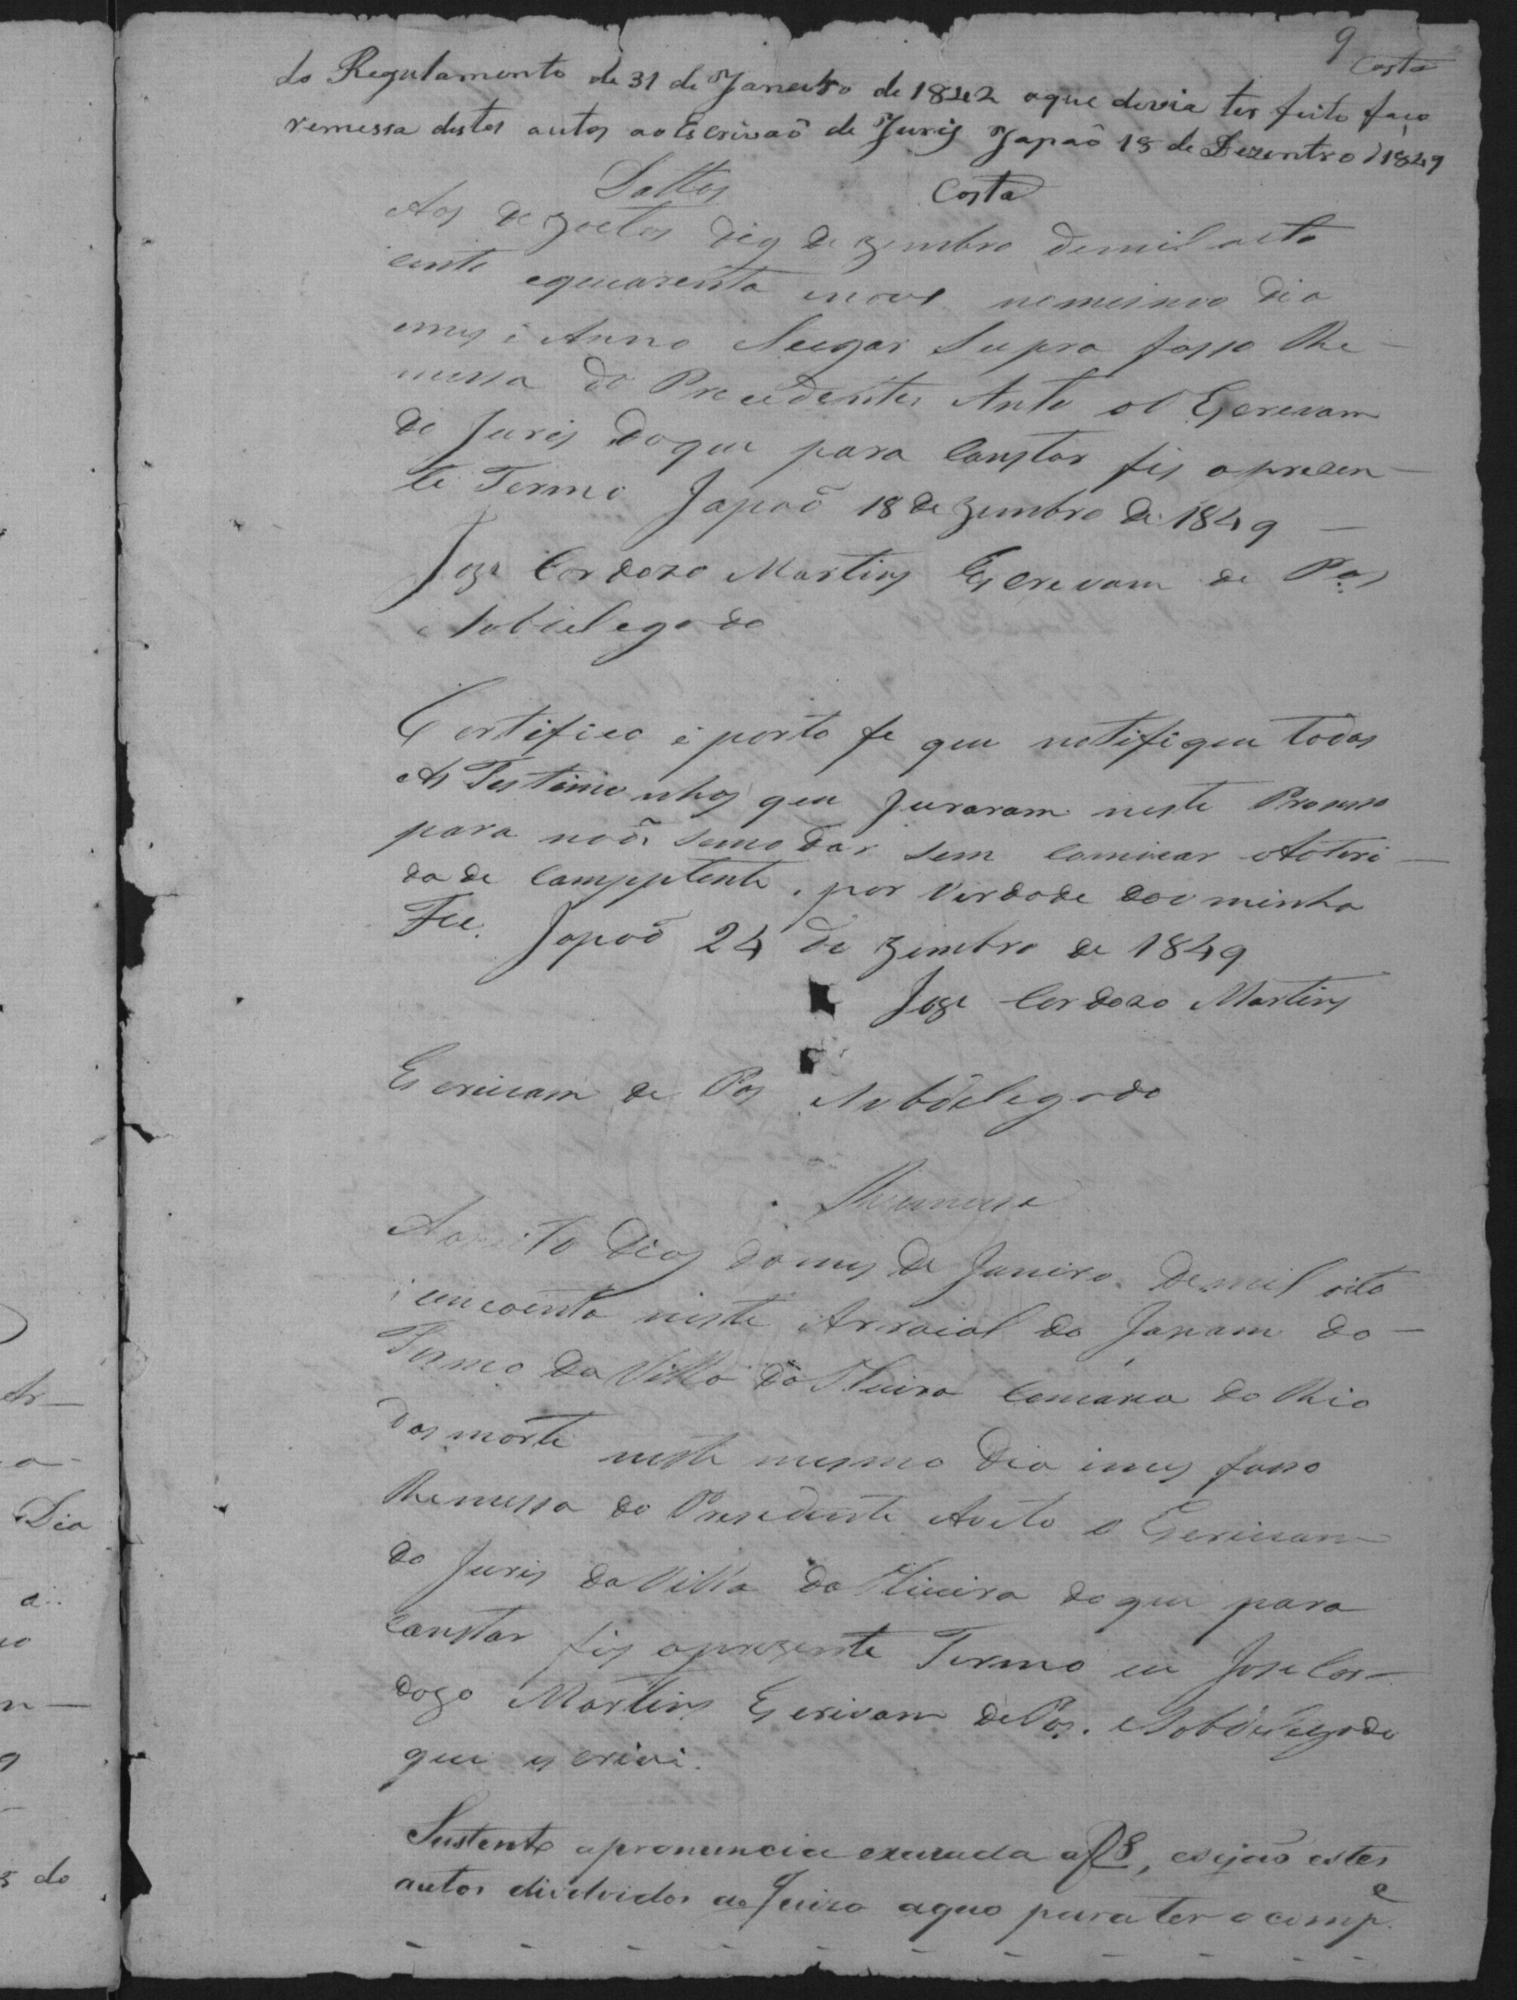 9
Costa
do Regulamento de 31 de Janeiro de 1842 aque devia ter feito faço
remessa destes autos ao Escrivaõ de Juris Japaõ 18 de Dezembro d 1849
Costa
Aos dezoetos dias Dezembro demil oito
cente equarenta inove nomesmo Dia
emes i Anno Lugar Supra fasso Re-
messa do Precedente Auto ao Escrevam
do Juris Doque para Constar fis opresen-
te Termo Japaõ 18 Dezembro de 1849 -
Joze Cordozo Martins Escrevam de Pas
Subdelegado
Certifico i porto fe que notifiquei todas
As Testimonhas que Juraram neste Proseso
para naõ semodar sem Comunicar Autori-
dade Competente, por Verdade dou minha
Fee. Japoõ 24 de zembro de 1849
Joze Cordozo Martins
Escrivam de Pas Subdelegado
Remessa
Aos oito Dias domes de Janeiro demil oito
i cincoenta neste Arraial do Japam do-
Termo da Villa da Oliveira Comarca do Rio
das morte neste mesmo Dia imes fasso
Remessa do Presedente Auto o Escrivam
do Juris da Villa da Oliveira do que para
Constar fis oprezente Termo eu Joze Cor-
dozo Martins Escrivam de Pas. Subdelegado
que escrivi.
Sustento apronuncia exarada a fl 8, e sejão estes
autos divolvidos ao Juizo aquo para ter o comp.e